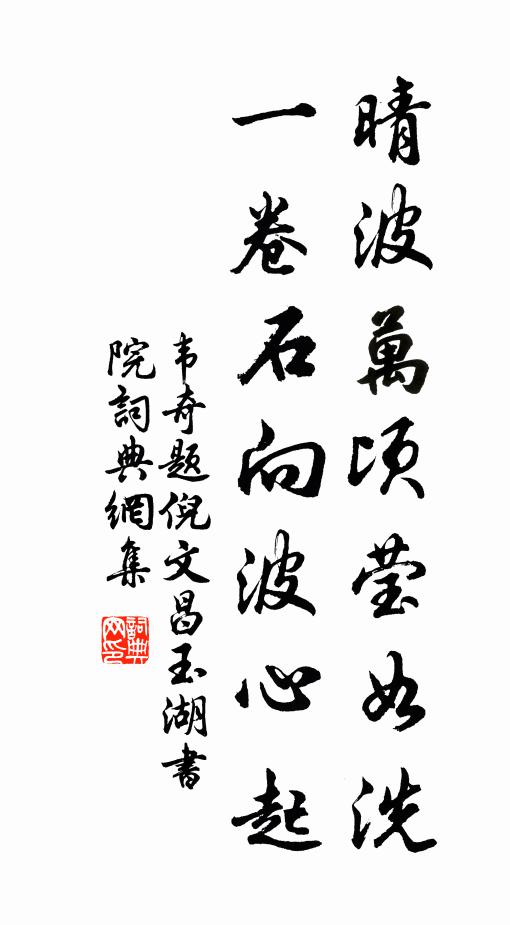 晴波萬頃莹如洗
一卷石向波心起
韦奇题倪文昌玉湖書
院詞典網集
詞典网印